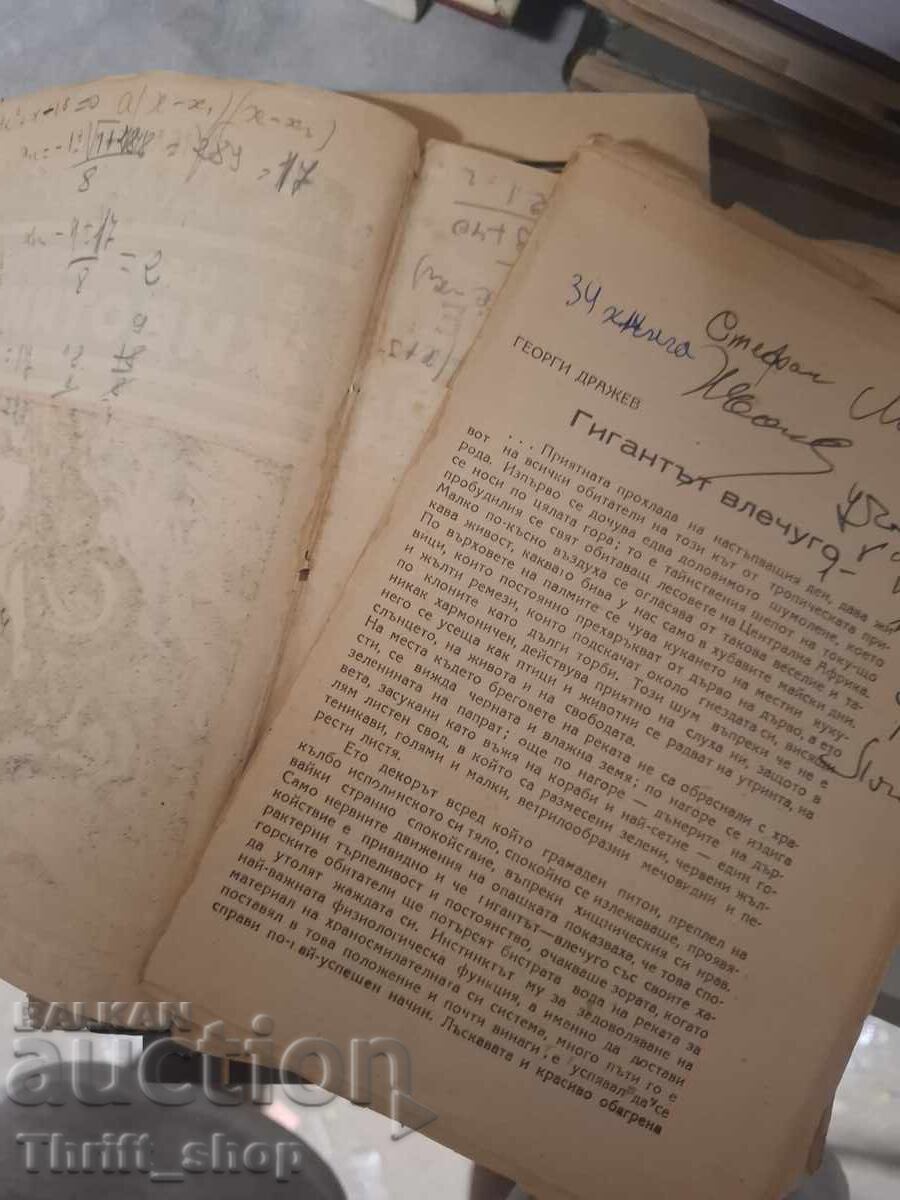 34 книга
Стефан
ГЕОРГИ ДРАЖЕВ
Гигантът влечуго
... Приятната прохлада на настъпващия ден, дава жи-
вот на всички обитатели на този кът от тропическата при-
рода. Изпърво се дочува едва доловимото шумолене, което
се носи по цялата гора; то е тайнствения шепот на току-що
пробудилия се свят обитаващ лесовете на Централна Африка.
Малко по-късно въздуха се огласява от такова веселие и та-
кава живост, каквато бива у нас само в хубавите майски дни.
По върховете на палмите се чува кукането на местни куку-
вици, които постоянно прехвръкват от дърво на дърво, а ето
и жълти ремези, които подскачат около гнездата си, висящи
по клоните като дълги торби. Този шум въпреки че не е
никак хармоничен, действува приятно на слуха ни, защото в
него се усеща как птици и животни се радват на утринта, на
слънцето, на живота и на свободата.
На места където бреговете на реката не са обраснали с хра-
сти, се вижда черната и влажна земя; по нагоре се издига
зеленината на папрат; още по нагоре — дънерите на дър-
вета, засукани като въжа на кораби и най-сетне — един го-
лям листен свод, в който са размесени зелени, червени жъл-
теникави, големи и малки, ветрилообразни мечовидни и пе-
рести листя.
Ето декорът всред който грамаден питон, преплел на
кълбо исполинското си тяло, спокойно се излежаваше, проявя-
вайки странно спокойствие, въпреки хищническия си нрав.
Само нервните движения на опашката показваха, че това спо-
койствие е привидно и че гигантът—влечуго със своите ха-
рактерни търпеливост и постоянство, очакваше зората, когато
горските обитатели ще потърсят бистрата вода на реката за
да утолят жаждата си. Инстинктът му за зедоволяване на
най-важната физиологическа функция, а именно да достави
материал на храносмилателната си система, много пъти го е
поставял в това положение и почти винаги е успявал да се
справи по най-успешен начин. Лъскавата и красиво обагрена
a(x-x₁)(x-x₂)
BALKAN
auction
Thrift_shop